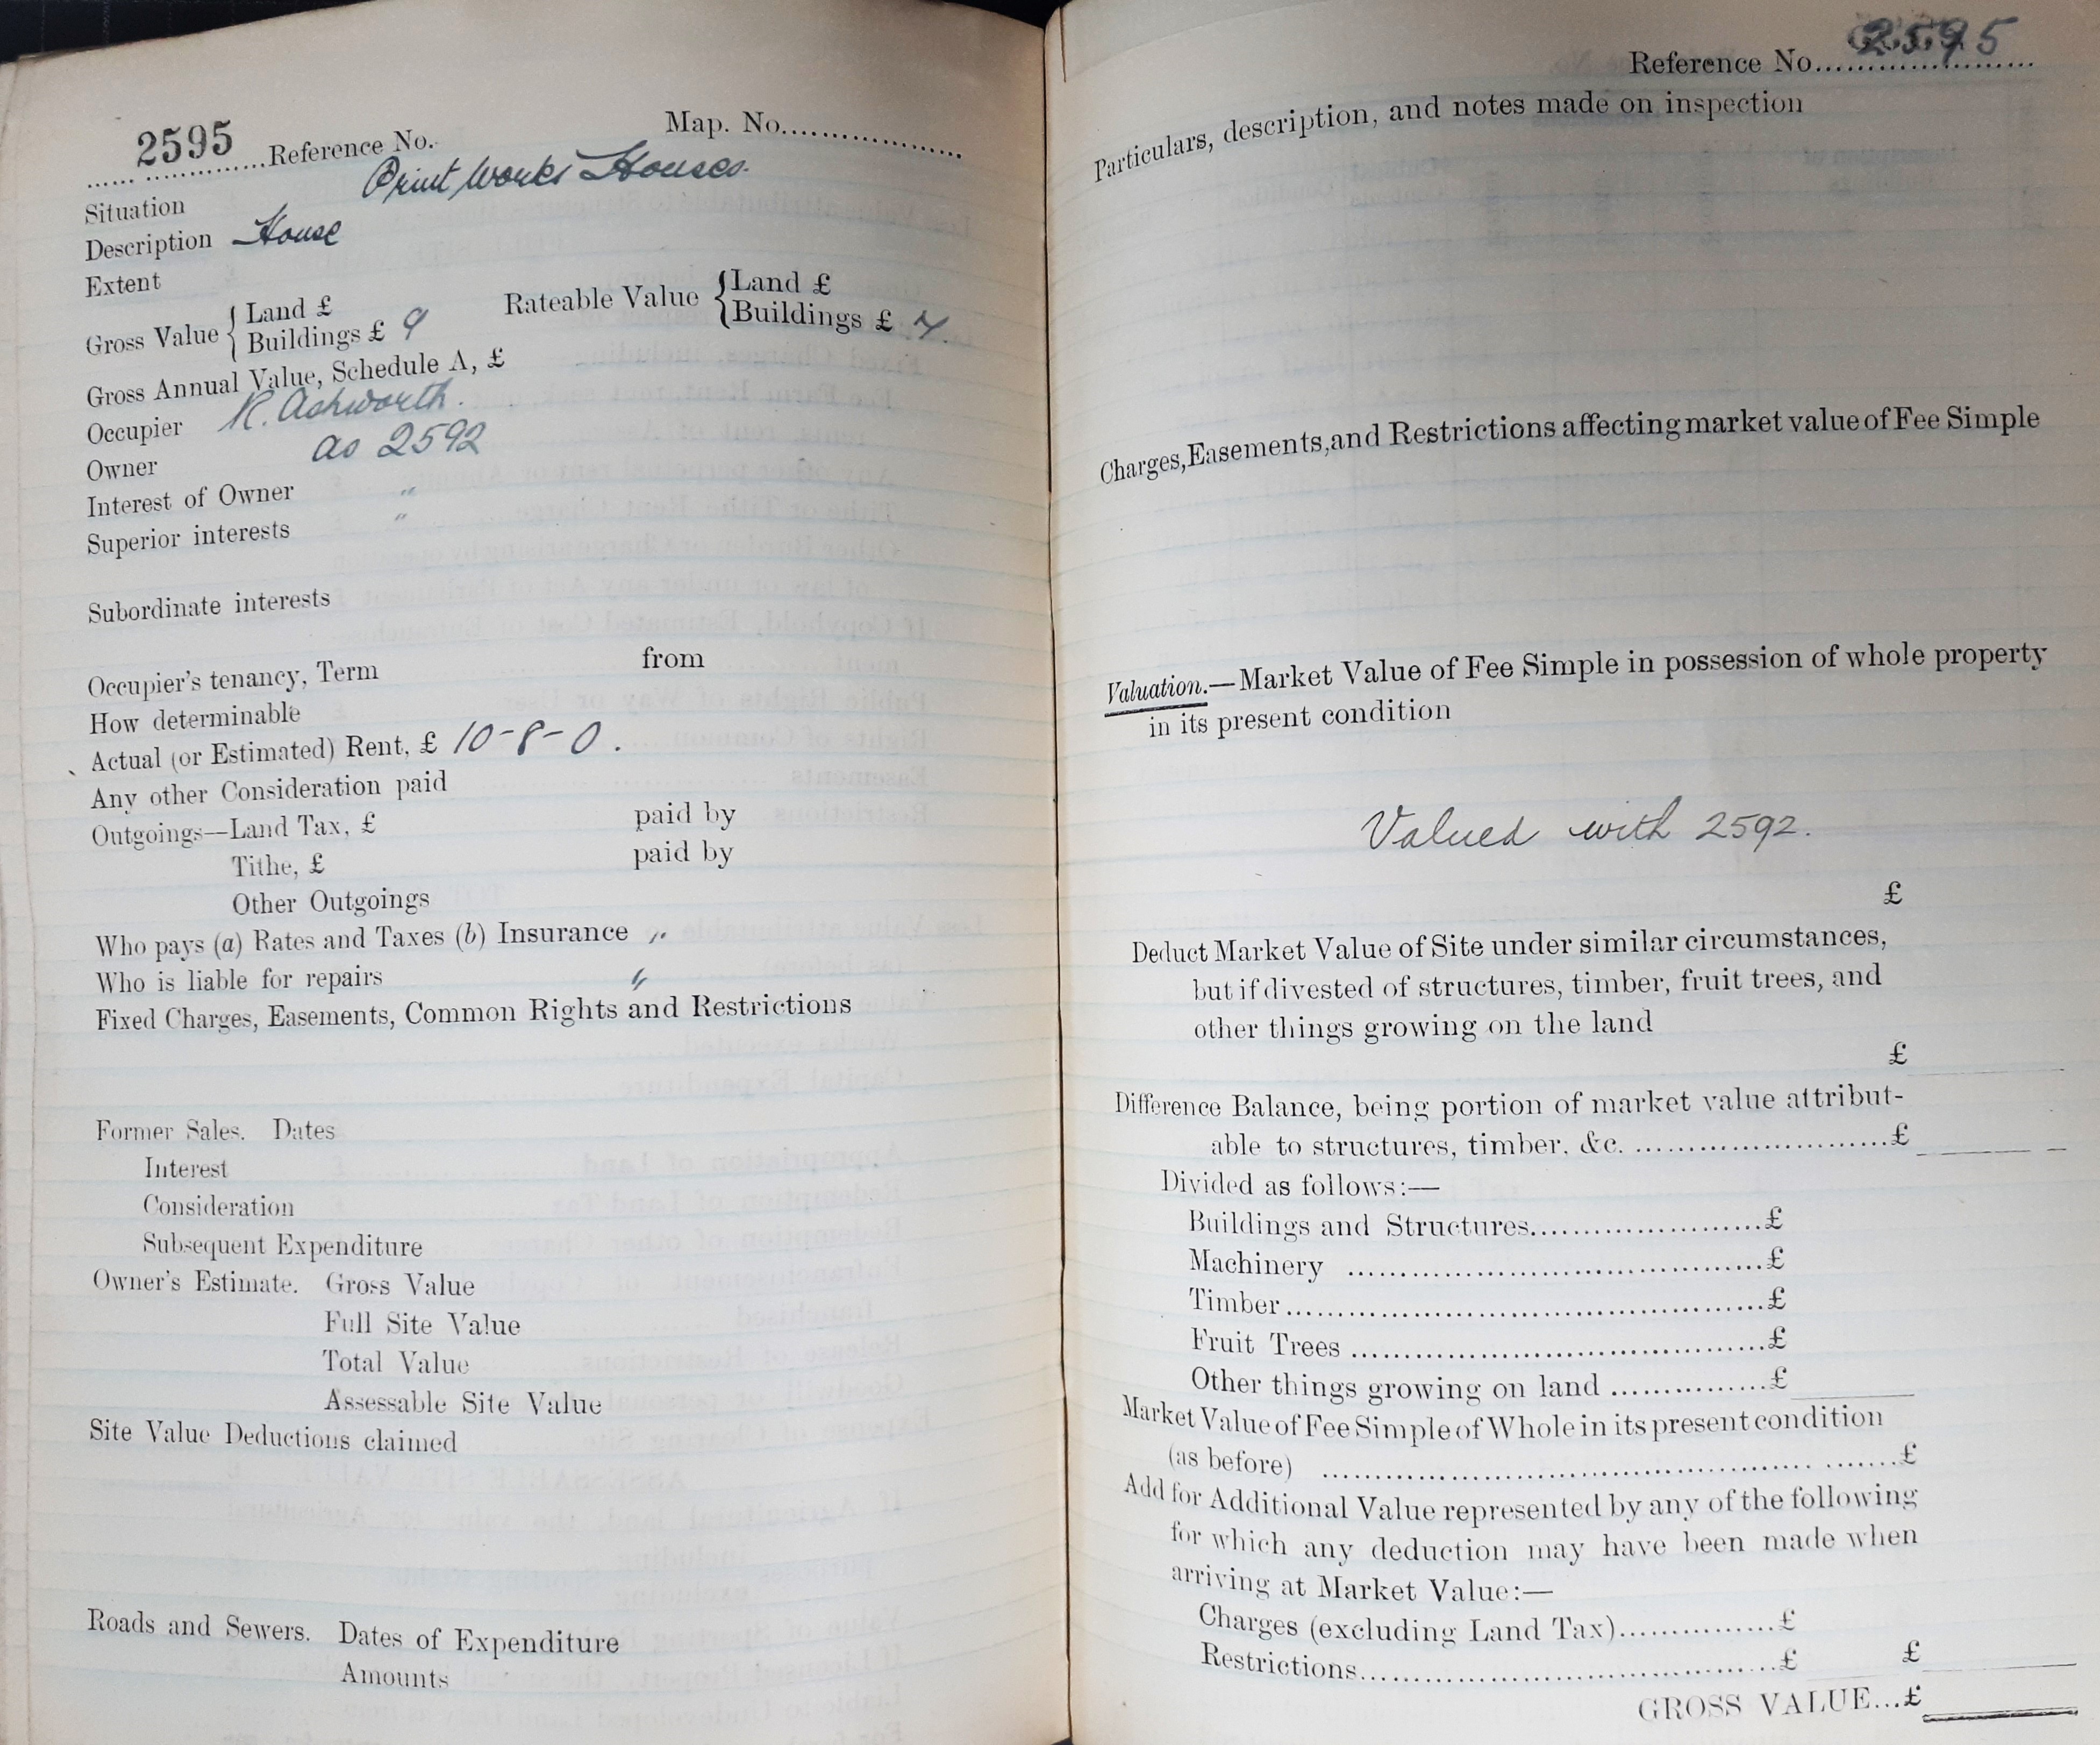 2595 Reference No.
Map. No.
Situation Print Works Houses.
Description House
Extent
Gross Value { Land £
Buildings £ 9
Rateable Value { Land £
Buildings £ 7.
Gross Annual Value, Schedule A, £
Occupier R. Ashworth.
Owner as 2592
Interest of Owner "
Superior interests "
Subordinate interests
Occupier's tenancy, Term from
How determinable
Actual (or Estimated) Rent, £ 10-8-0.
Any other Consideration paid
Outgoings—Land Tax, £ paid by
Tithe, £ paid by
Other Outgoings
Who pays (a) Rates and Taxes (b) Insurance "
Who is liable for repairs "
Fixed Charges, Easements, Common Rights and Restrictions
Former Sales. Dates
Interest
Consideration
Subsequent Expenditure
Owner's Estimate. Gross Value
Full Site Value
Total Value
Assessable Site Value
Site Value Deductions claimed
Roads and Sewers. Dates of Expenditure
Amounts
Reference No. 2595
Particulars, description, and notes made on inspection
Charges, Easements, and Restrictions affecting market value of Fee Simple
Valuation.—Market Value of Fee Simple in possession of whole property
in its present condition
Valued with 2592.
£
Deduct Market Value of Site under similar circumstances,
but if divested of structures, timber, fruit trees, and
other things growing on the land
£
Difference Balance, being portion of market value attribut-
able to structures, timber, &c. £
Divided as follows:—
Buildings and Structures £
Machinery £
Timber £
Fruit Trees £
Other things growing on land £
Market Value of Fee Simple of Whole in its present condition
(as before) £
Add for Additional Value represented by any of the following
for which any deduction may have been made when
arriving at Market Value:—
Charges (excluding Land Tax) £
Restrictions £ £
GROSS VALUE...£